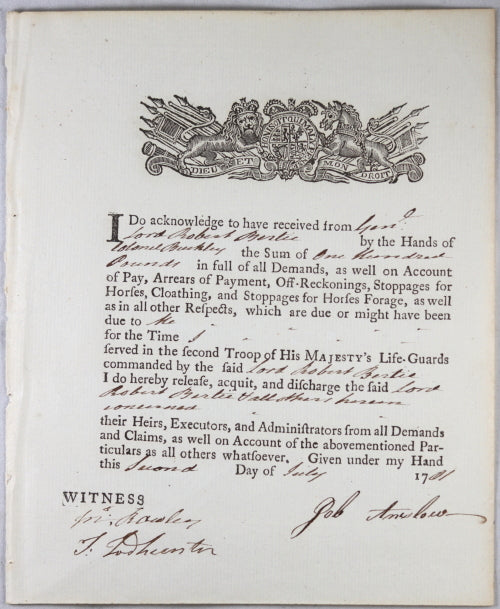 HONI SOIT QUI MAL Y PENSE
DIEU ET MON DROIT
I Do acknowledge to have received from Genl.
Lord Robert Bertie by the Hands of
Colonel Buckley the Sum of One Hundred
Pounds in full of all Demands, as well on Account
of Pay, Arrears of Payment, Off-Reckonings, Stoppages for
Horses, Cloathing, and Stoppages for Horses Forage, as well
as in all other Respects, which are due or might have been
due to Me
for the Time I
served in the second Troop of His MAJESTY's Life-Guards
commanded by the said Lord Robert Bertie
I do hereby release, acquit, and discharge the said Lord
Robert Bertie & all others herein
concerned
their Heirs, Executors, and Administrators from all Demands
and Claims, as well on Account of the abovementioned Par-
ticulars as all others whatsoever. Given under my Hand
this Second Day of July 1781
WITNESS
Rowley
Job Anslow
T.